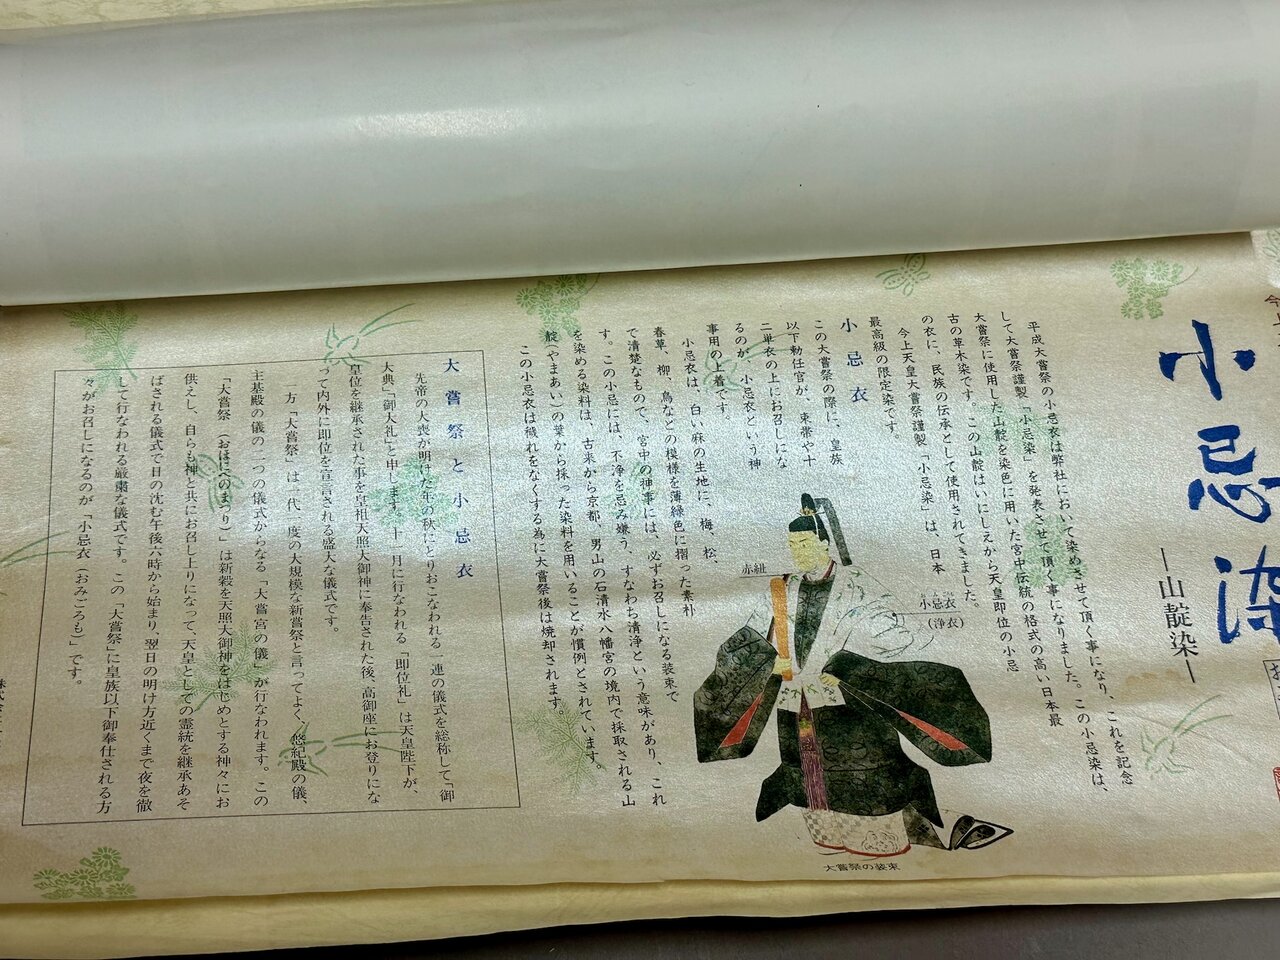 小忌染
―山靛染―
平成大嘗祭の小忌衣は弊社において染めさせて頂く事になり、これを記念
して大嘗祭謹製「小忌染」を発表させて頂く事になりました。この小忌染は、
大嘗祭に使用した山靛を染色に用いた宮中伝統の格式の高い日本最
古の草木染です。この山靛はいにしえから天皇即位の小忌
の衣に、民族の伝承として使用されてきました。
今上天皇大嘗祭謹製「小忌染」は、日本
最高級の限定染です。
小忌衣
この大嘗祭の際に、皇族
以下勅任官が、束帯や十
二単衣の上にお召しにな
るのが、小忌衣という神
事用の上着です。
小忌衣は、白い麻の生地に、梅、松、
春草、柳、鳥などの模様を薄緑色に摺った素朴
で清楚なもので、宮中の神事には、必ずお召しになる装束で
す。この小忌には、不浄を忌み嫌う、すなわち清浄という意味があり、これ
を染める染料は、古来から京都、男山の石清水八幡宮の境内で採取される山
靛(やまあい)の葉から採った染料を用いることが慣例とされています。
この小忌衣は穢れをなくする為に大嘗祭後は焼却されます。
赤紐
小忌衣
(浄衣)
大嘗祭の装束
大嘗祭と小忌衣
先帝の大喪が明けた年の秋にとりおこなわれる一連の儀式を総称して「御
大典」「御大礼」と申します。十一月に行なわれる「即位礼」は天皇陛下が、
皇位を継承された事を皇祖天照大御神に奉告された後、高御座にお登りにな
って内外に即位を宣言される盛大な儀式です。
一方「大嘗祭」は一代一度の大規模な新嘗祭と言ってよく、悠紀殿の儀、
主基殿の儀の二つの儀式からなる「大嘗宮の儀」が行なわれます。この
「大嘗祭(おほにへのまつり)」は新穀を天照大御神をはじめとする神々にお
供えし、自らも神と共にお召し上りになって、天皇としての霊統を継承あそ
ばされる儀式で日の沈む午後六時から始まり、翌日の明け方近くまで夜を徹
して行なわれる厳粛な儀式です。この「大嘗祭」に皇族以下御奉仕される方
々がお召しになるのが「小忌衣(おみごろも)」です。